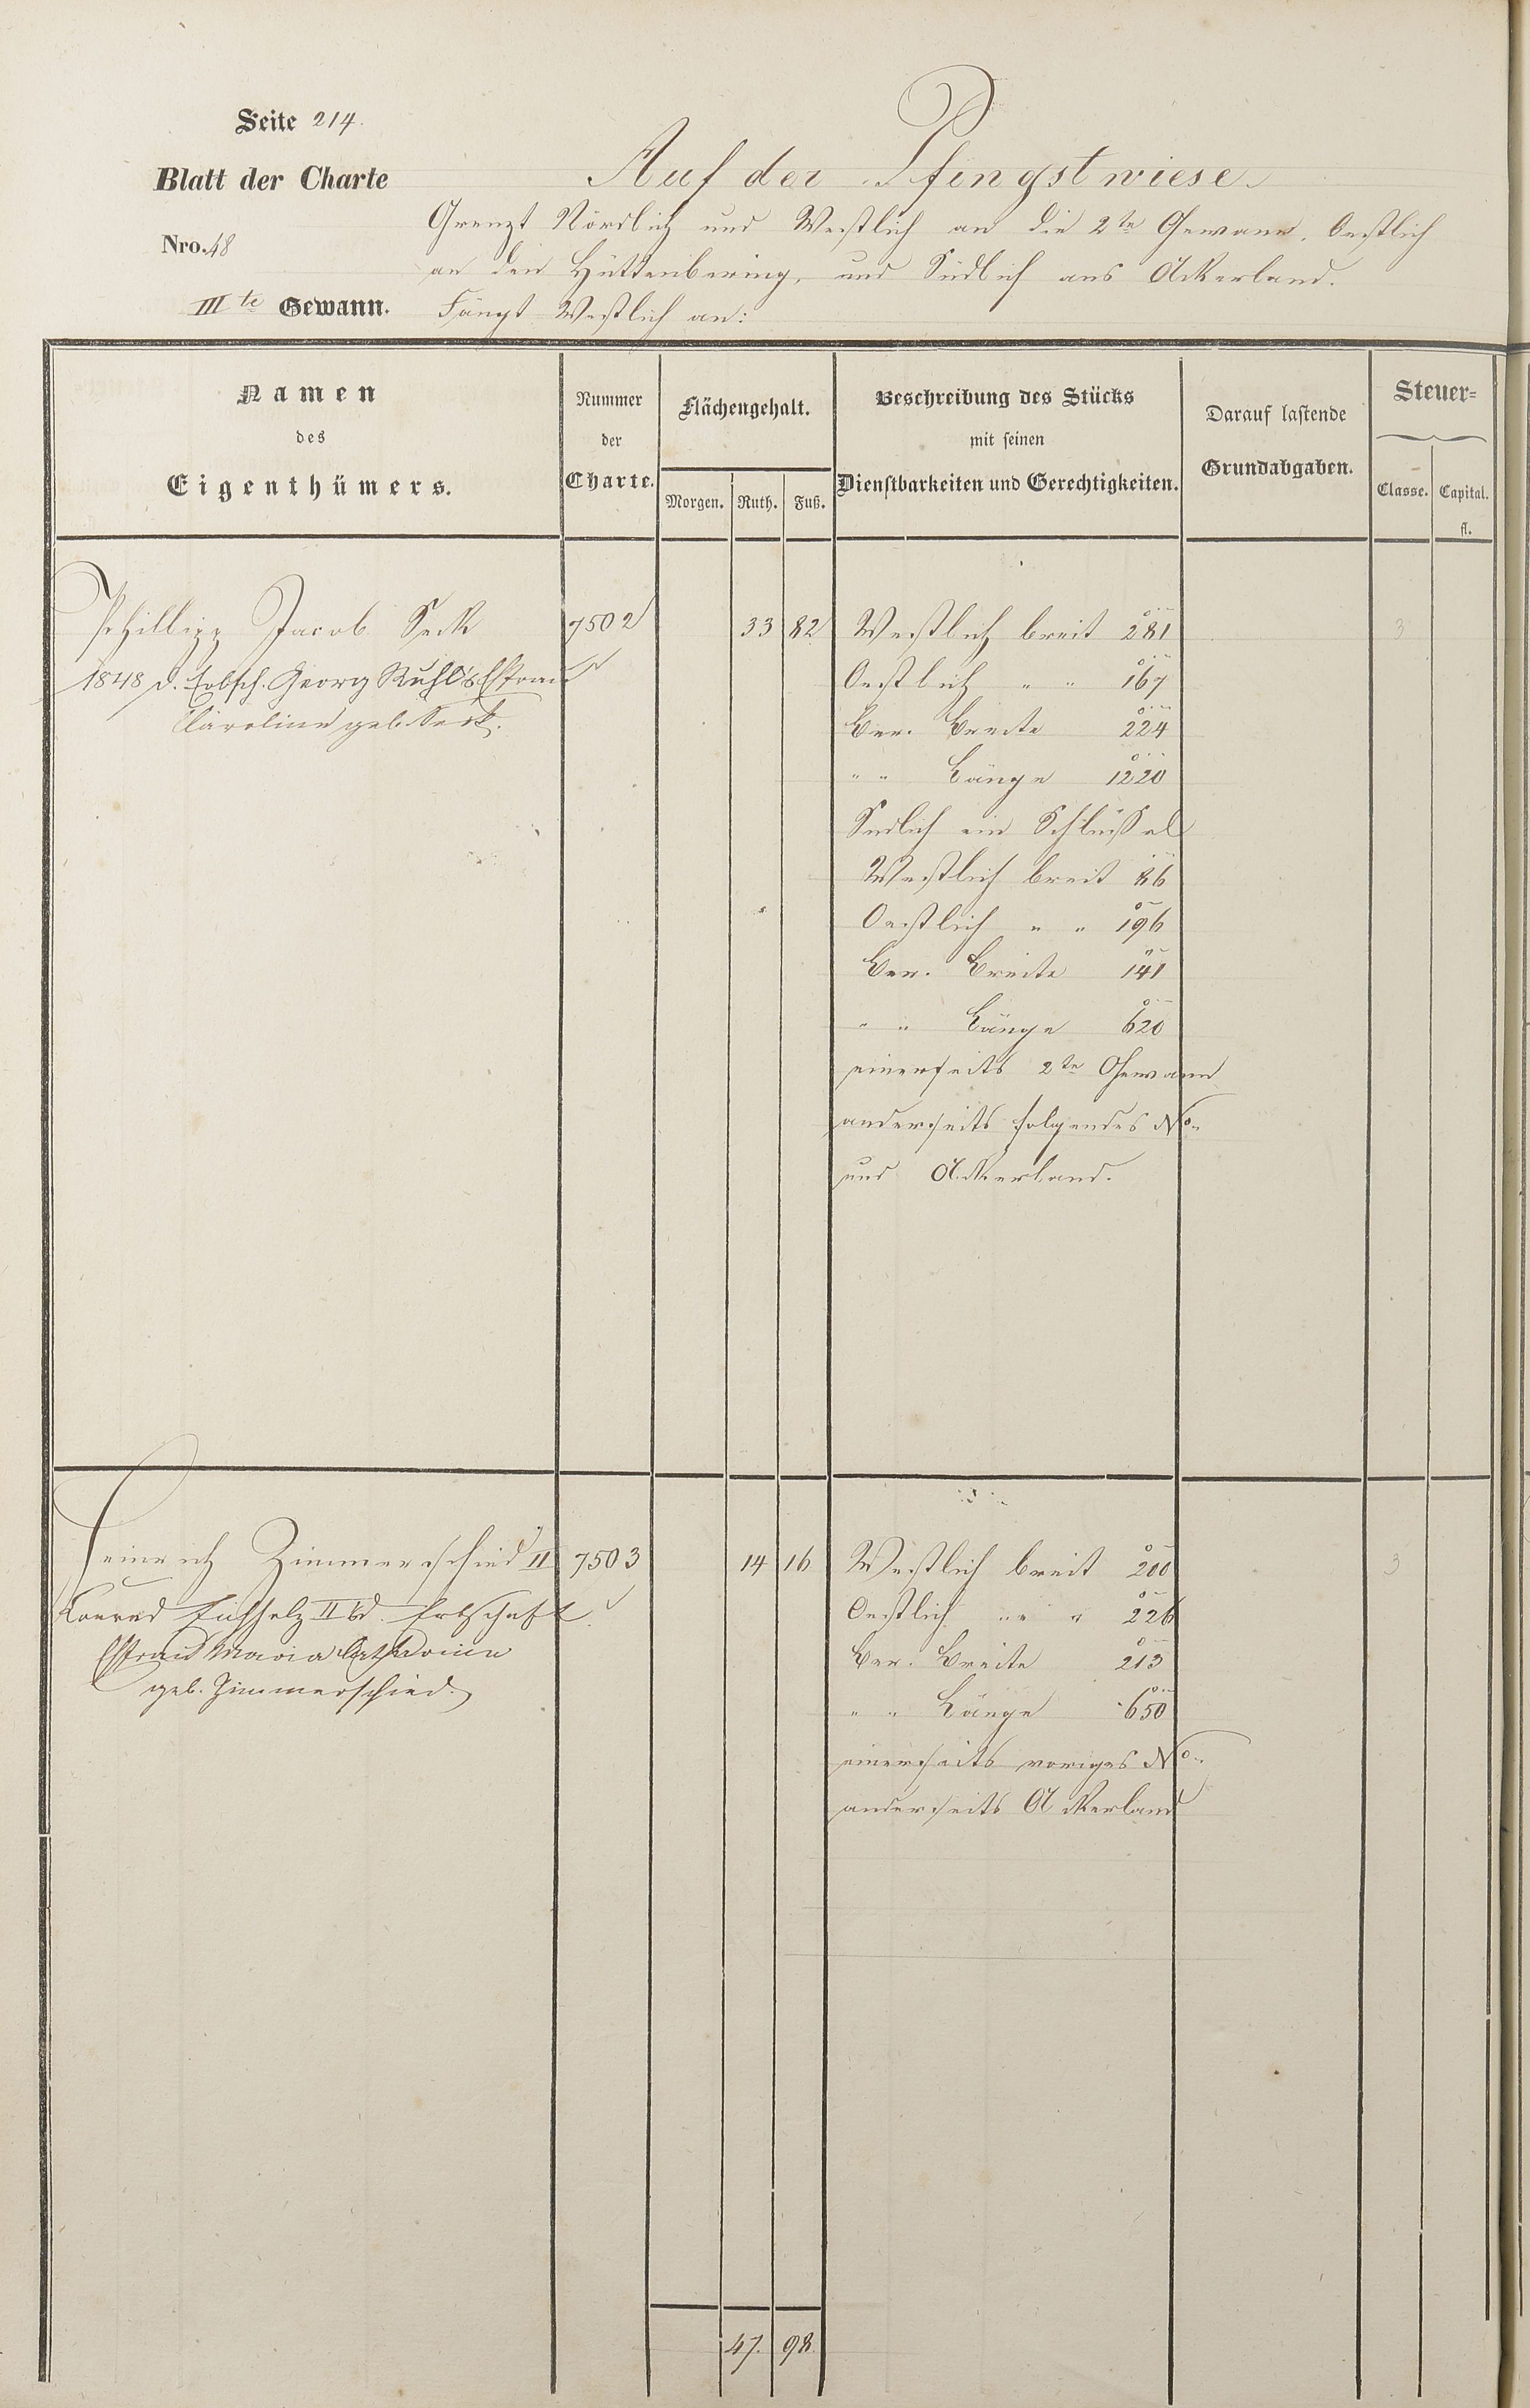 Seite 214.
Blatt der Charte
Nro. 48
IIIte Gewann.
Auf der Pfingstwiese.
Grenzt Nördlich und Westlich an die 2te Gewann, Oestlich
an den Hüttenbering, und Südlich ans Ackerland.
Fängt Westlich an:
Namen
des
Eigenthümers.
Nummer
der
Charte.
Flächengehalt.
Morgen. Ruth. Fuß.
Beschreibung des Stücks
mit seinen
Dienstbarkeiten und Gerechtigkeiten.
Darauf lastende
Grundabgaben.
Steuer=
Classe. Capital.
fl.
Philipp Jacob Seck 7502 33 82 Westlich breit 281 3
1848 d. Erbsch. Georg Ruhl's Ehfrau Oestlich " " 167
Caroline geb. Seck. Ber. Breite 224
" " Länge 1220
Südlich ein Schlüssel
Westlich breit 86
Oestlich " " 196
Ber. Breite 141
" " Länge 620
einerseits 2te Gewann
anderseits folgendes No.
und Ackerland.
Heinrich Zimmerschied II 7503 14 16 Westlich breit 200 3
Konrad Eichholz II d. Erbschaft Oestlich " " 226
Ehfrau Maria Catharina Ber. Breite 213
geb. Zimmerschied. " " Länge 650
einerseits voriges No.
anderseits Ackerland
47. 98